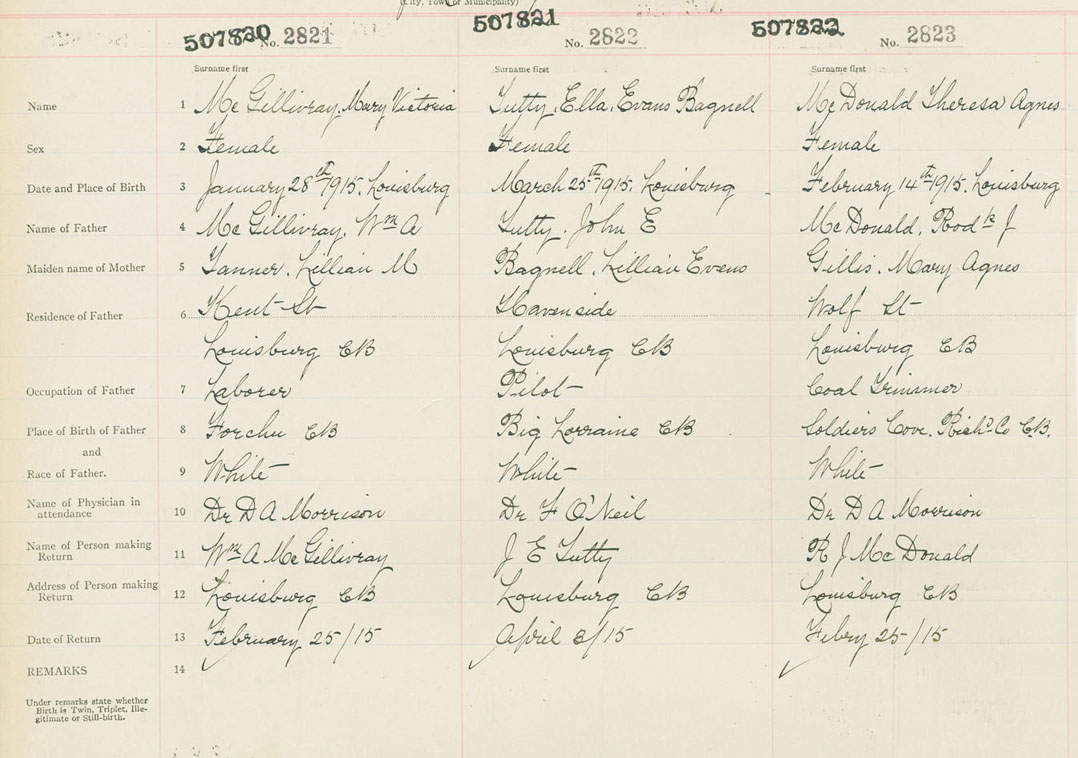 (City, Town or Municipality)
507820 No. 2821 507821 No. 2822 507822 No. 2823
Surname first Surname first Surname first
Name 1 McGillivray, Mary Victoria Tutty, Ella, Evans Bagnell McDonald Theresa Agnes
Sex 2 Female Female Female
Date and Place of Birth 3 January 28th 1915, Louisburg March 25th 1915, Louisburg February 14th 1915, Louisburg
Name of Father 4 McGillivray, Wm A Tutty, John E McDonald, Rodk J
Maiden name of Mother 5 Tanner, Lillian M Bagnell, Lillian Evans Gillis, Mary Agnes
Residence of Father 6 Kent St Havenside Wolf St
Louisburg CB Louisburg CB Louisburg CB
Occupation of Father 7 Laborer Pilot Coal Trimmer
Place of Birth of Father 8 Forchu CB Big Lorraine CB Soldiers Cove, Richd Co C.B.
and
Race of Father. 9 White White White
Name of Physician in attendance 10 Dr D A Morrison Dr F O'Neil Dr D A Morrison
Name of Person making Return 11 Wm A McGillivray J E Tutty R J McDonald
Address of Person making Return 12 Louisburg CB Louisburg CB Louisburg CB
Date of Return 13 February 25/15 April 3/15 Febry 25/15
REMARKS 14
Under remarks state whether
Birth is Twin, Triplet, Ille-
gitimate or Still-birth.